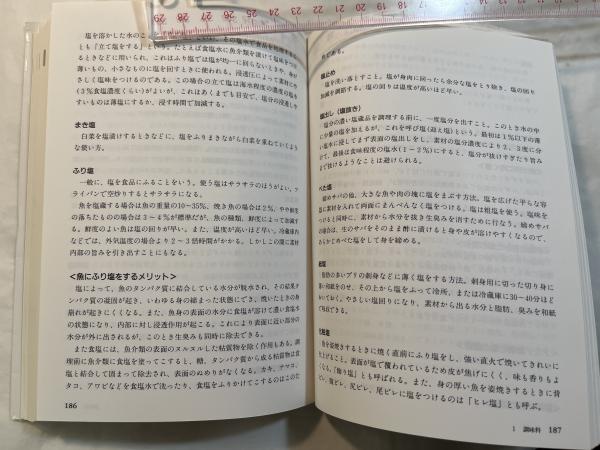 塩を溶かした水のこと
とも「立て塩をする」という。たとえば食塩水に魚介類を漬けて塩味をつけ
るときなどに用いられ、これはふり塩では塩が均一に回らないときや、身が
薄いもの、小さなものに塩を回すときに使われる。浸透圧によって素材にや
さしく塩味をつけるのである。この場合の立て塩は海水程度の濃度の塩水
(3%食塩濃度くらい)がよいが、これはあくまでも目安で、塩分の浸透しや
すいものは薄塩にするか、浸す時間で加減する。
まき塩
白菜を塩漬けするときなどに、塩をふりまきながら白菜を重ねていくよう
な使い方。
ふり塩
一般に、塩を食品にふることをいう。使う塩はサラサラのほうがよい。フ
ライパンで空炒りするとサラサラになる。
魚を塩蔵する場合は魚の重量の10〜35%、焼き魚の場合は2%、やや鮮度
の落ちたものの場合は3〜4%が標準だが、魚の種類、鮮度によって加減す
る。鮮度のよい魚は塩の回りが早い。また、温度が高いほど早い。冷蔵庫内
などでは、外気温度の場合より2〜3倍時間がかかる。しかしこの間に素材
内部の旨みを引き出すことにもなる。
<魚にふり塩をするメリット>
塩によって、魚のタンパク質に結合している水分が脱水され、その結果タ
ンパク質の凝固が起き、いわゆる身の締まった状態にでき、焼いたときの身
崩れが起きにくくなる。また、魚身の表面の水分に食塩が溶けて濃い食塩水
の状態になり、内部に対し浸透作用が起こる。これにより表面に近い部分の
水分が外に出されるが、このとき生臭みも同時に除去できる。
また食塩には、魚介類の表面のヌルヌルした粘質物を除く作用もある。調
理前に魚介類に食塩を塗ってこすると、糖、タンパク質から成る粘質物は食
塩と結合して固まって除去され、表面のぬめりがなくなる。カキ、アマコ、
タコ、アワビなどを食塩水で洗ったり、食塩をふりかけてこするのはこのた
186
めである。
塩止め
塩を洗い落とすこと。塩が身肉に回ったら余分な塩をとり除き、塩の回り
加減を調節する。塩の回りは温度が高いほど早い。
塩出し(塩抜き)
塩分の濃い塩蔵品を調理する前に、一度塩分を出すこと。このとき水の中
に少量の塩を加えるが、これを呼び塩(迎え塩)という。最初は1%以下の薄
い塩水に浸してまず表面の塩出しをし、素材の塩分濃度により2、3度に分
けて、最後は食味程度の塩水(1〜2%)にすると、塩分が抜けすぎたり旨み
まで抜けるようなことは避けられる。
べた塩
締めサバの他、大きな魚や肉の塊に塩をまぶす方法。塩を広げた平らな容
器に素材を入れて両面にまんべんなく塩をつける。塩は粗塩を使う。塩味を
つけると同時に、素材から水分を抜き生臭みを消すために行なう。締めサバ
の場合は、生のサバをそのまま酢に漬けると身や皮が溶けやすくなるので、
あらかじめべた塩をして身を締める。
紙塩
脂肪の多いブリの刺身などに薄く塩をする方法。刺身用に切った切り身に
濃い和紙をのせ、その上から塩をふって冷所、または冷蔵庫に30〜40分ほど
おいておく。やさしい塩回りになり、素材から出る水分と脂肪、臭みを和紙
で取れる。
化粧塩
魚を姿焼きするときに焼く直前にふり塩をし、強い直火で焼いてきれいに
仕上げること。表面が塩で覆われているため皮が焦げにくく、味も香りもよ
くなる。「飾り塩」とも呼ばれる。また、身の厚い魚を姿焼きするときに背
ビレ、胸ビレ、尻ビレ、尾ビレに塩をつけるのは「ヒレ塩」とも呼ぶ。
1 調味料 187